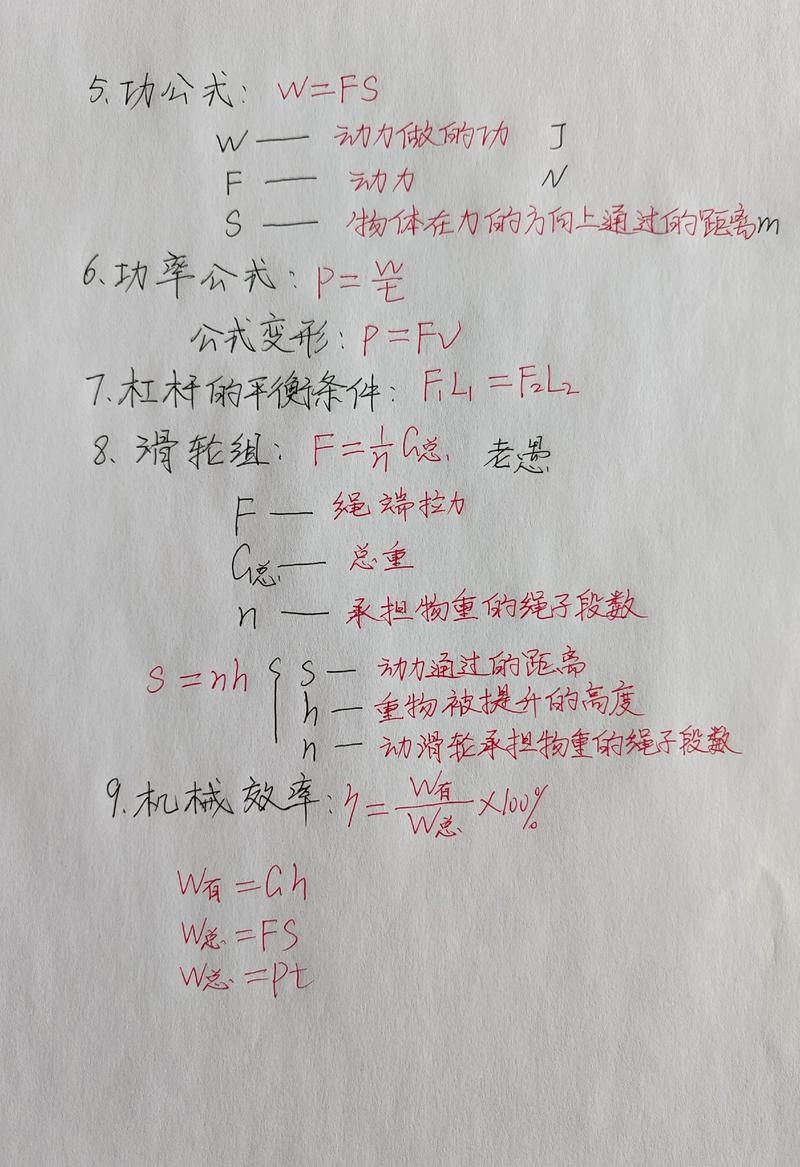 5. 功公式: W=FS
W — 动力做的功 J
F — 动力 N
S — 物体在力的方向上通过的距离m
6. 功率公式: P=W/t
公式变形: P=FV
7. 杠杆的平衡条件: F₁L₁=F₂L₂
8. 滑轮组: F=1/n G总 老愚
F — 绳端拉力
G总 — 总重
n — 承担物重的绳子段数
S=nh { S — 动力通过的距离
h — 重物被提升的高度
n — 动滑轮承担物重的绳子段数
9. 机械效率: η=W有/W总×100%
W有=Gh
W总=FS
W总=Pt